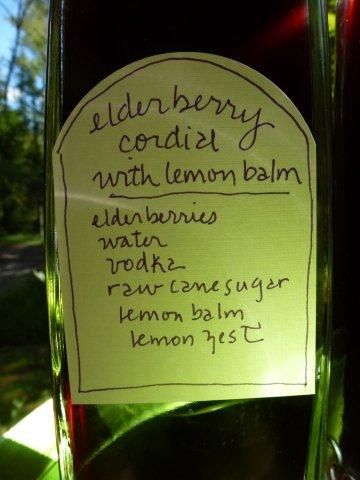 elderberry
cordial
with lemon balm
elderberries
water
vodka
raw cane sugar
lemon balm
lemon zest